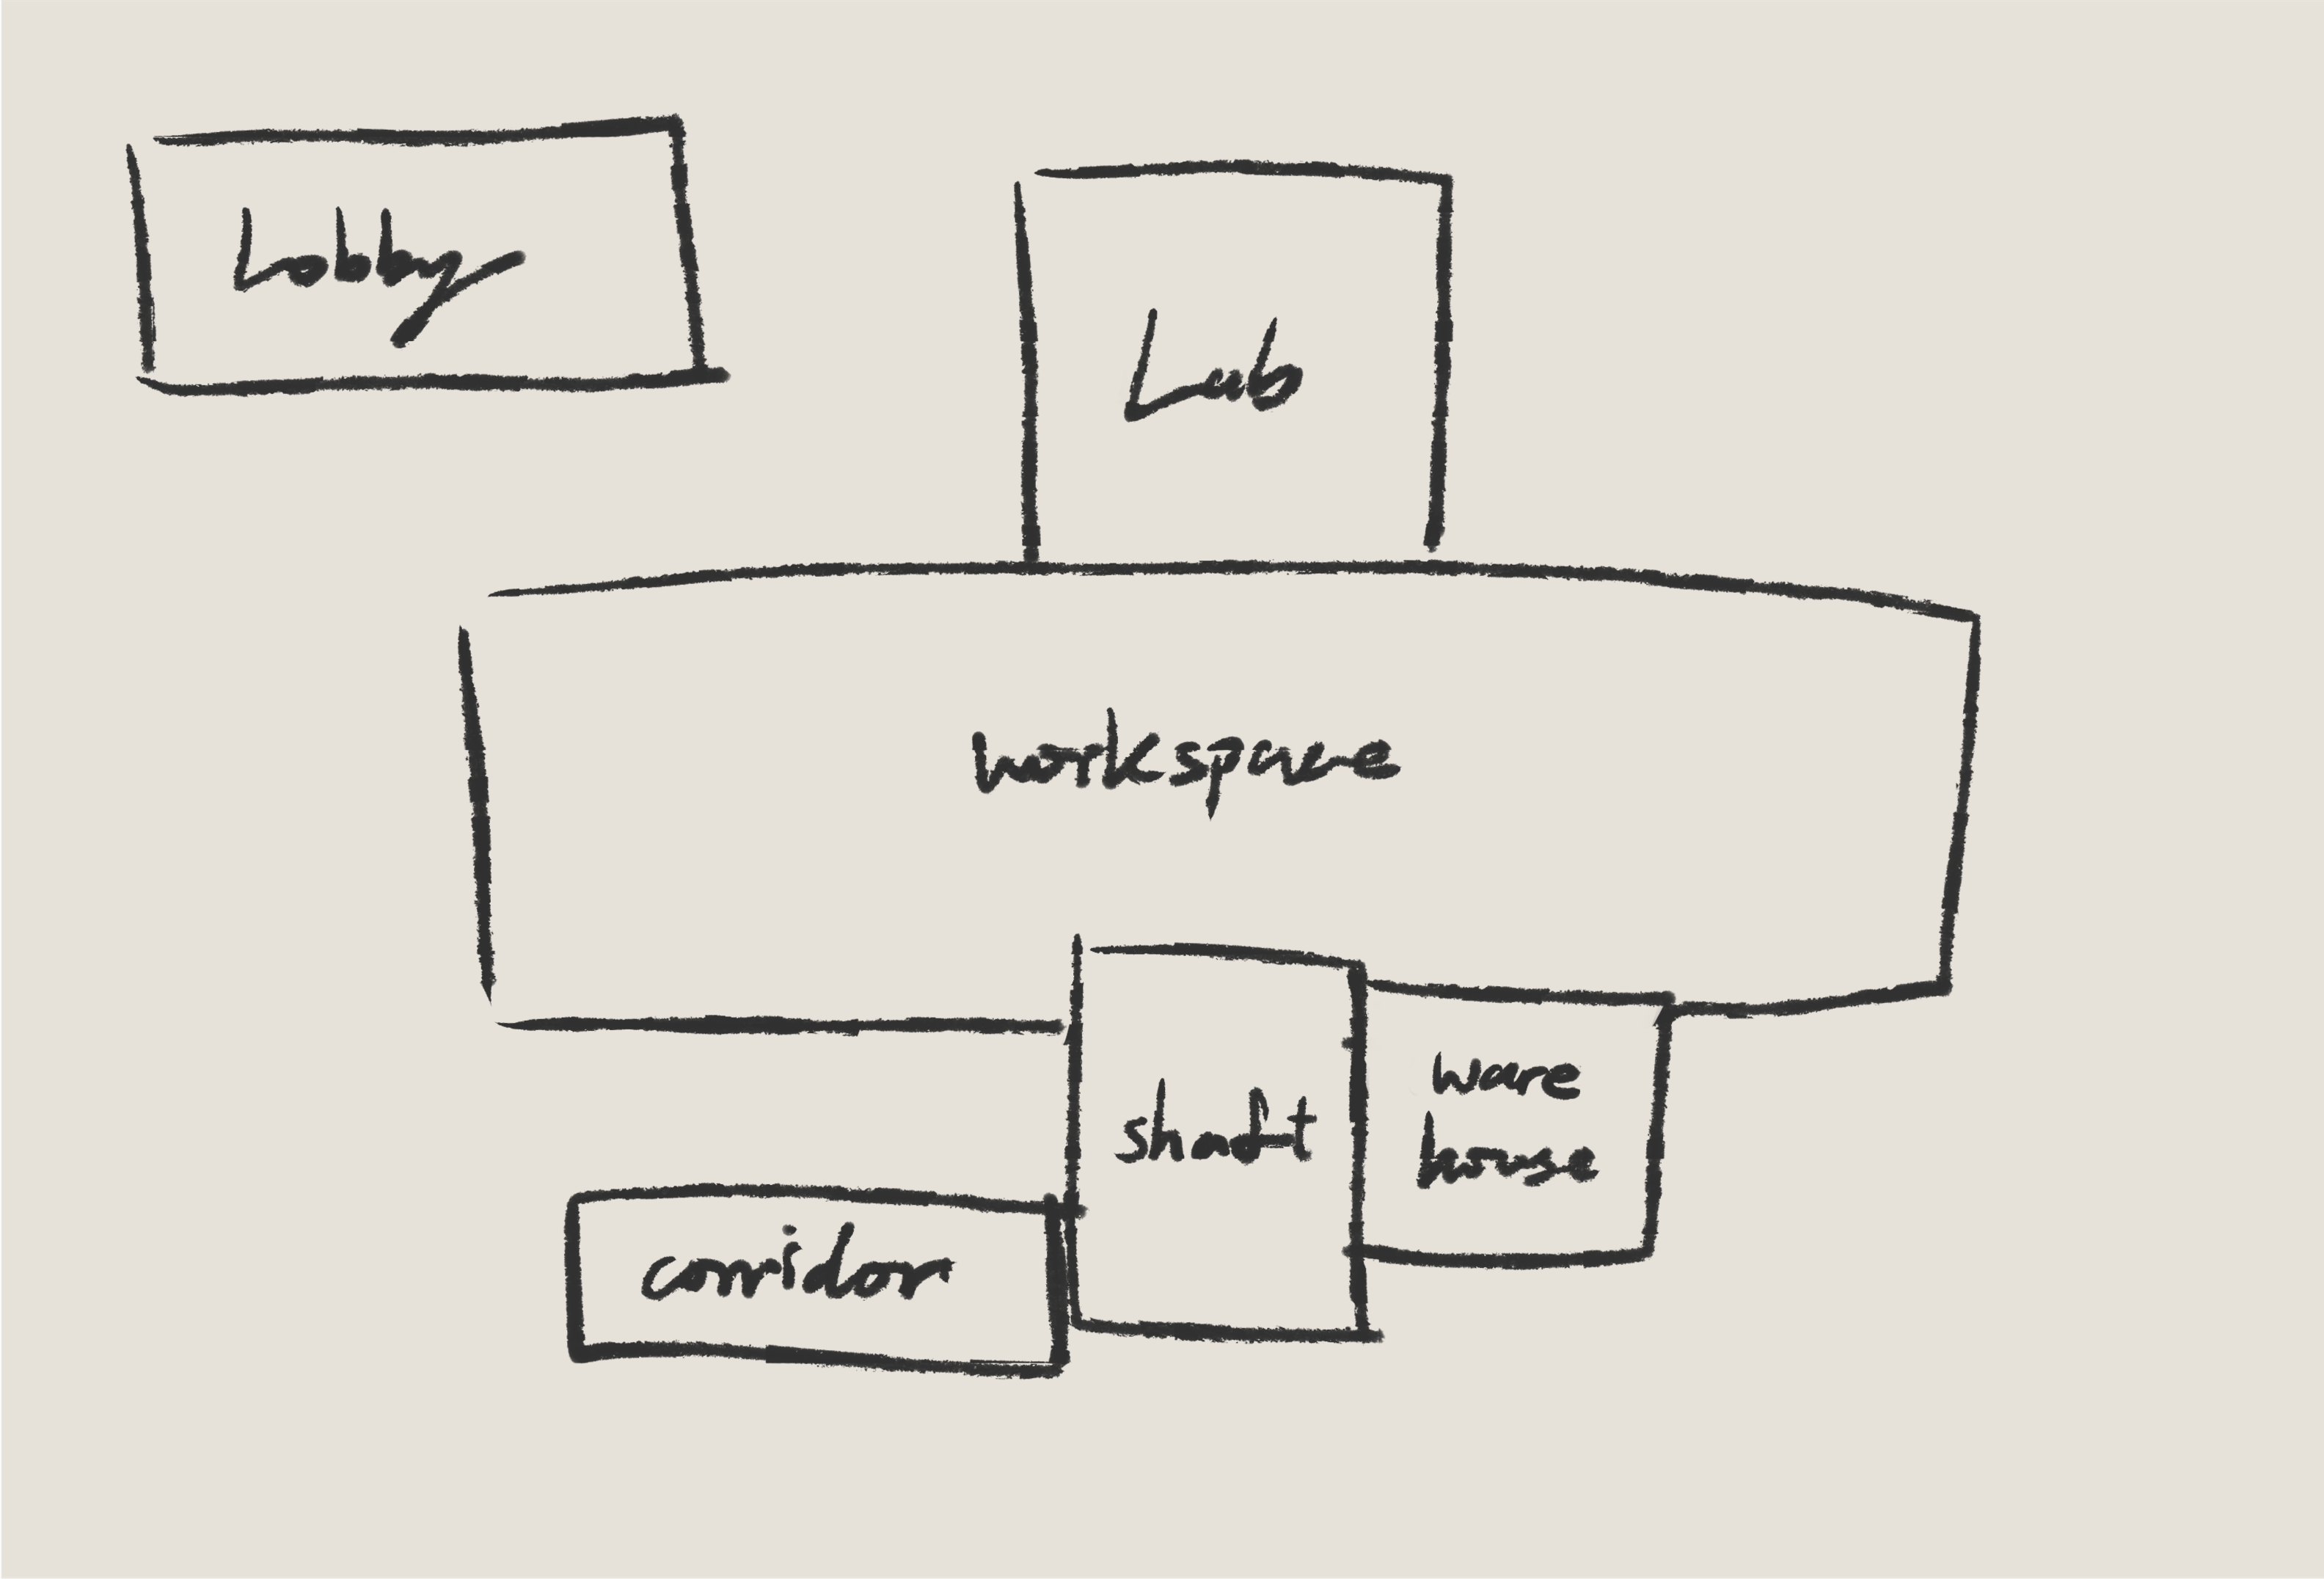 Lobby
Lab
workspace
shaft
ware
house
corridor